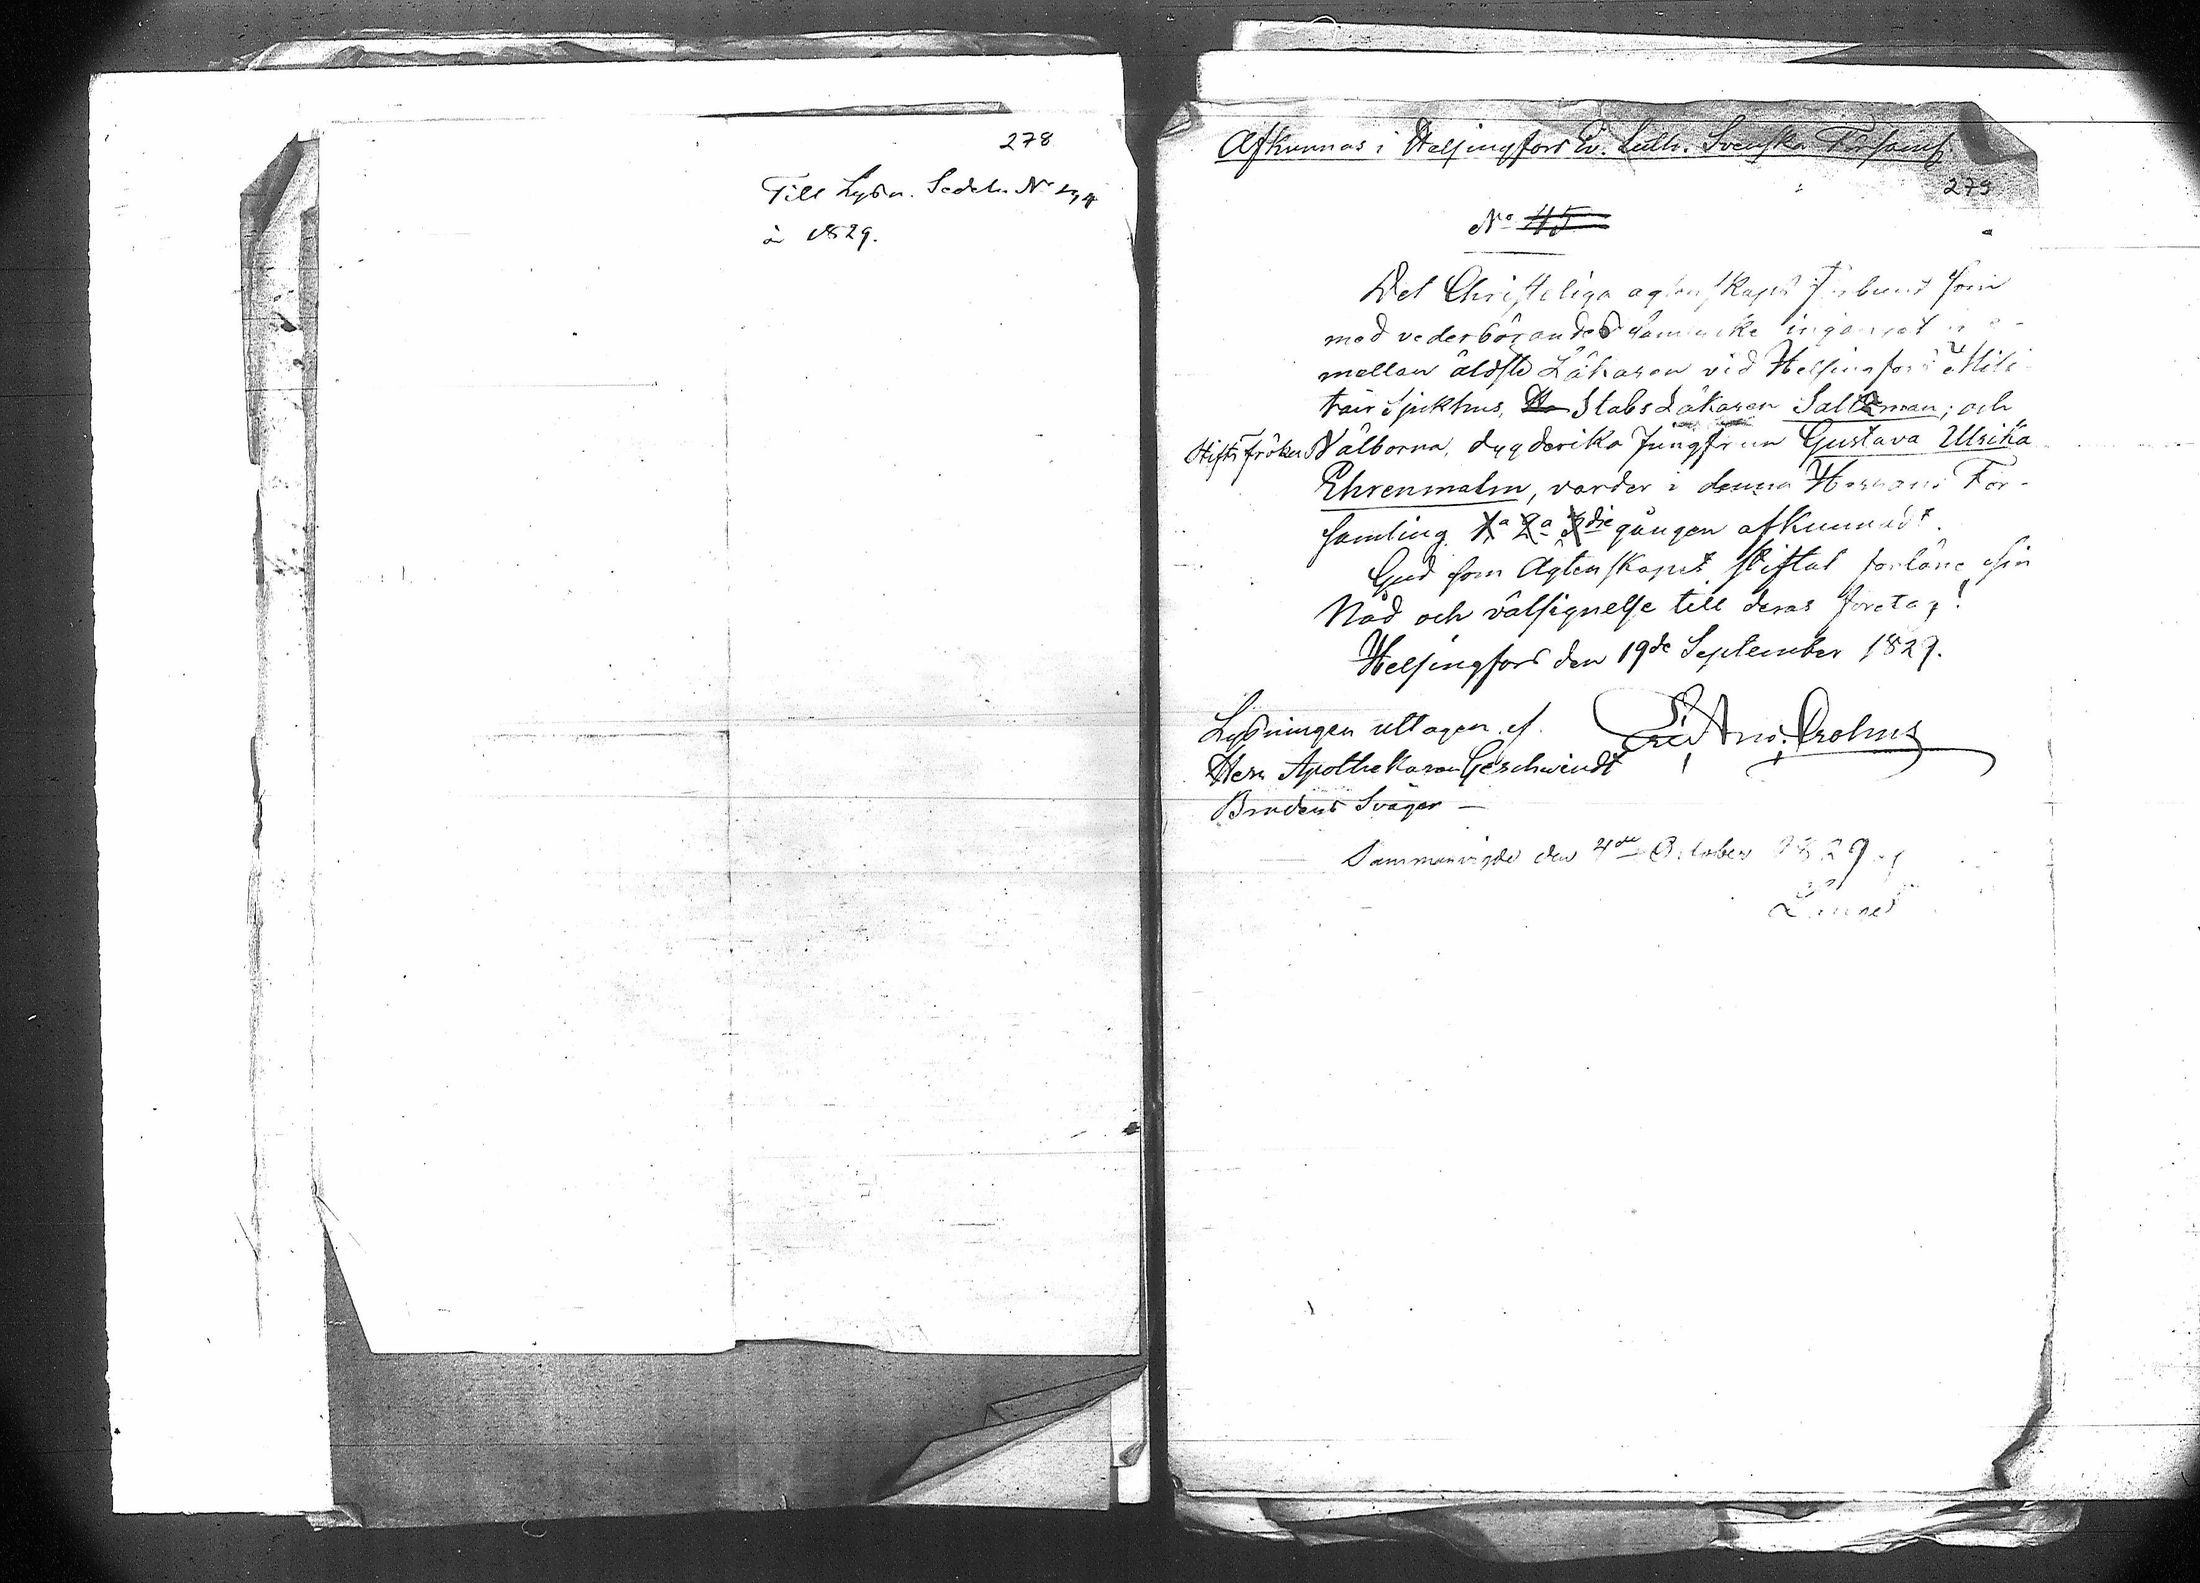 278
Till Lysn. Sedeln No
år 1829.
Afkunnas i Helsingfors Ev. Luth. Svenska Församl
279
No 45
Det Christeliga agtenskaps förbund som
med vederbörandes samtycke ingånget
mellan äldste Läkaren vid Helsingfors Mili-
tair Sjukhus, Stabs Läkaren Saltzman, och
Stifts fröken Välborna, dygderika Jungfrun Gustava Ulrika
Ehrenmalm, varder i denna Herrans För-
samling 1a 2a 3die gången afkunnadt.
Gud som Agtenskapet stiftat förläne sin
Nåd och välsignelse till deras företag!
Helsingfors den 19de September 1829.
Lysningen uttagen af
Herr Apothekaren Geschwindt
Brudens Svåger —
Sammanvigde den 4de October 1829 af